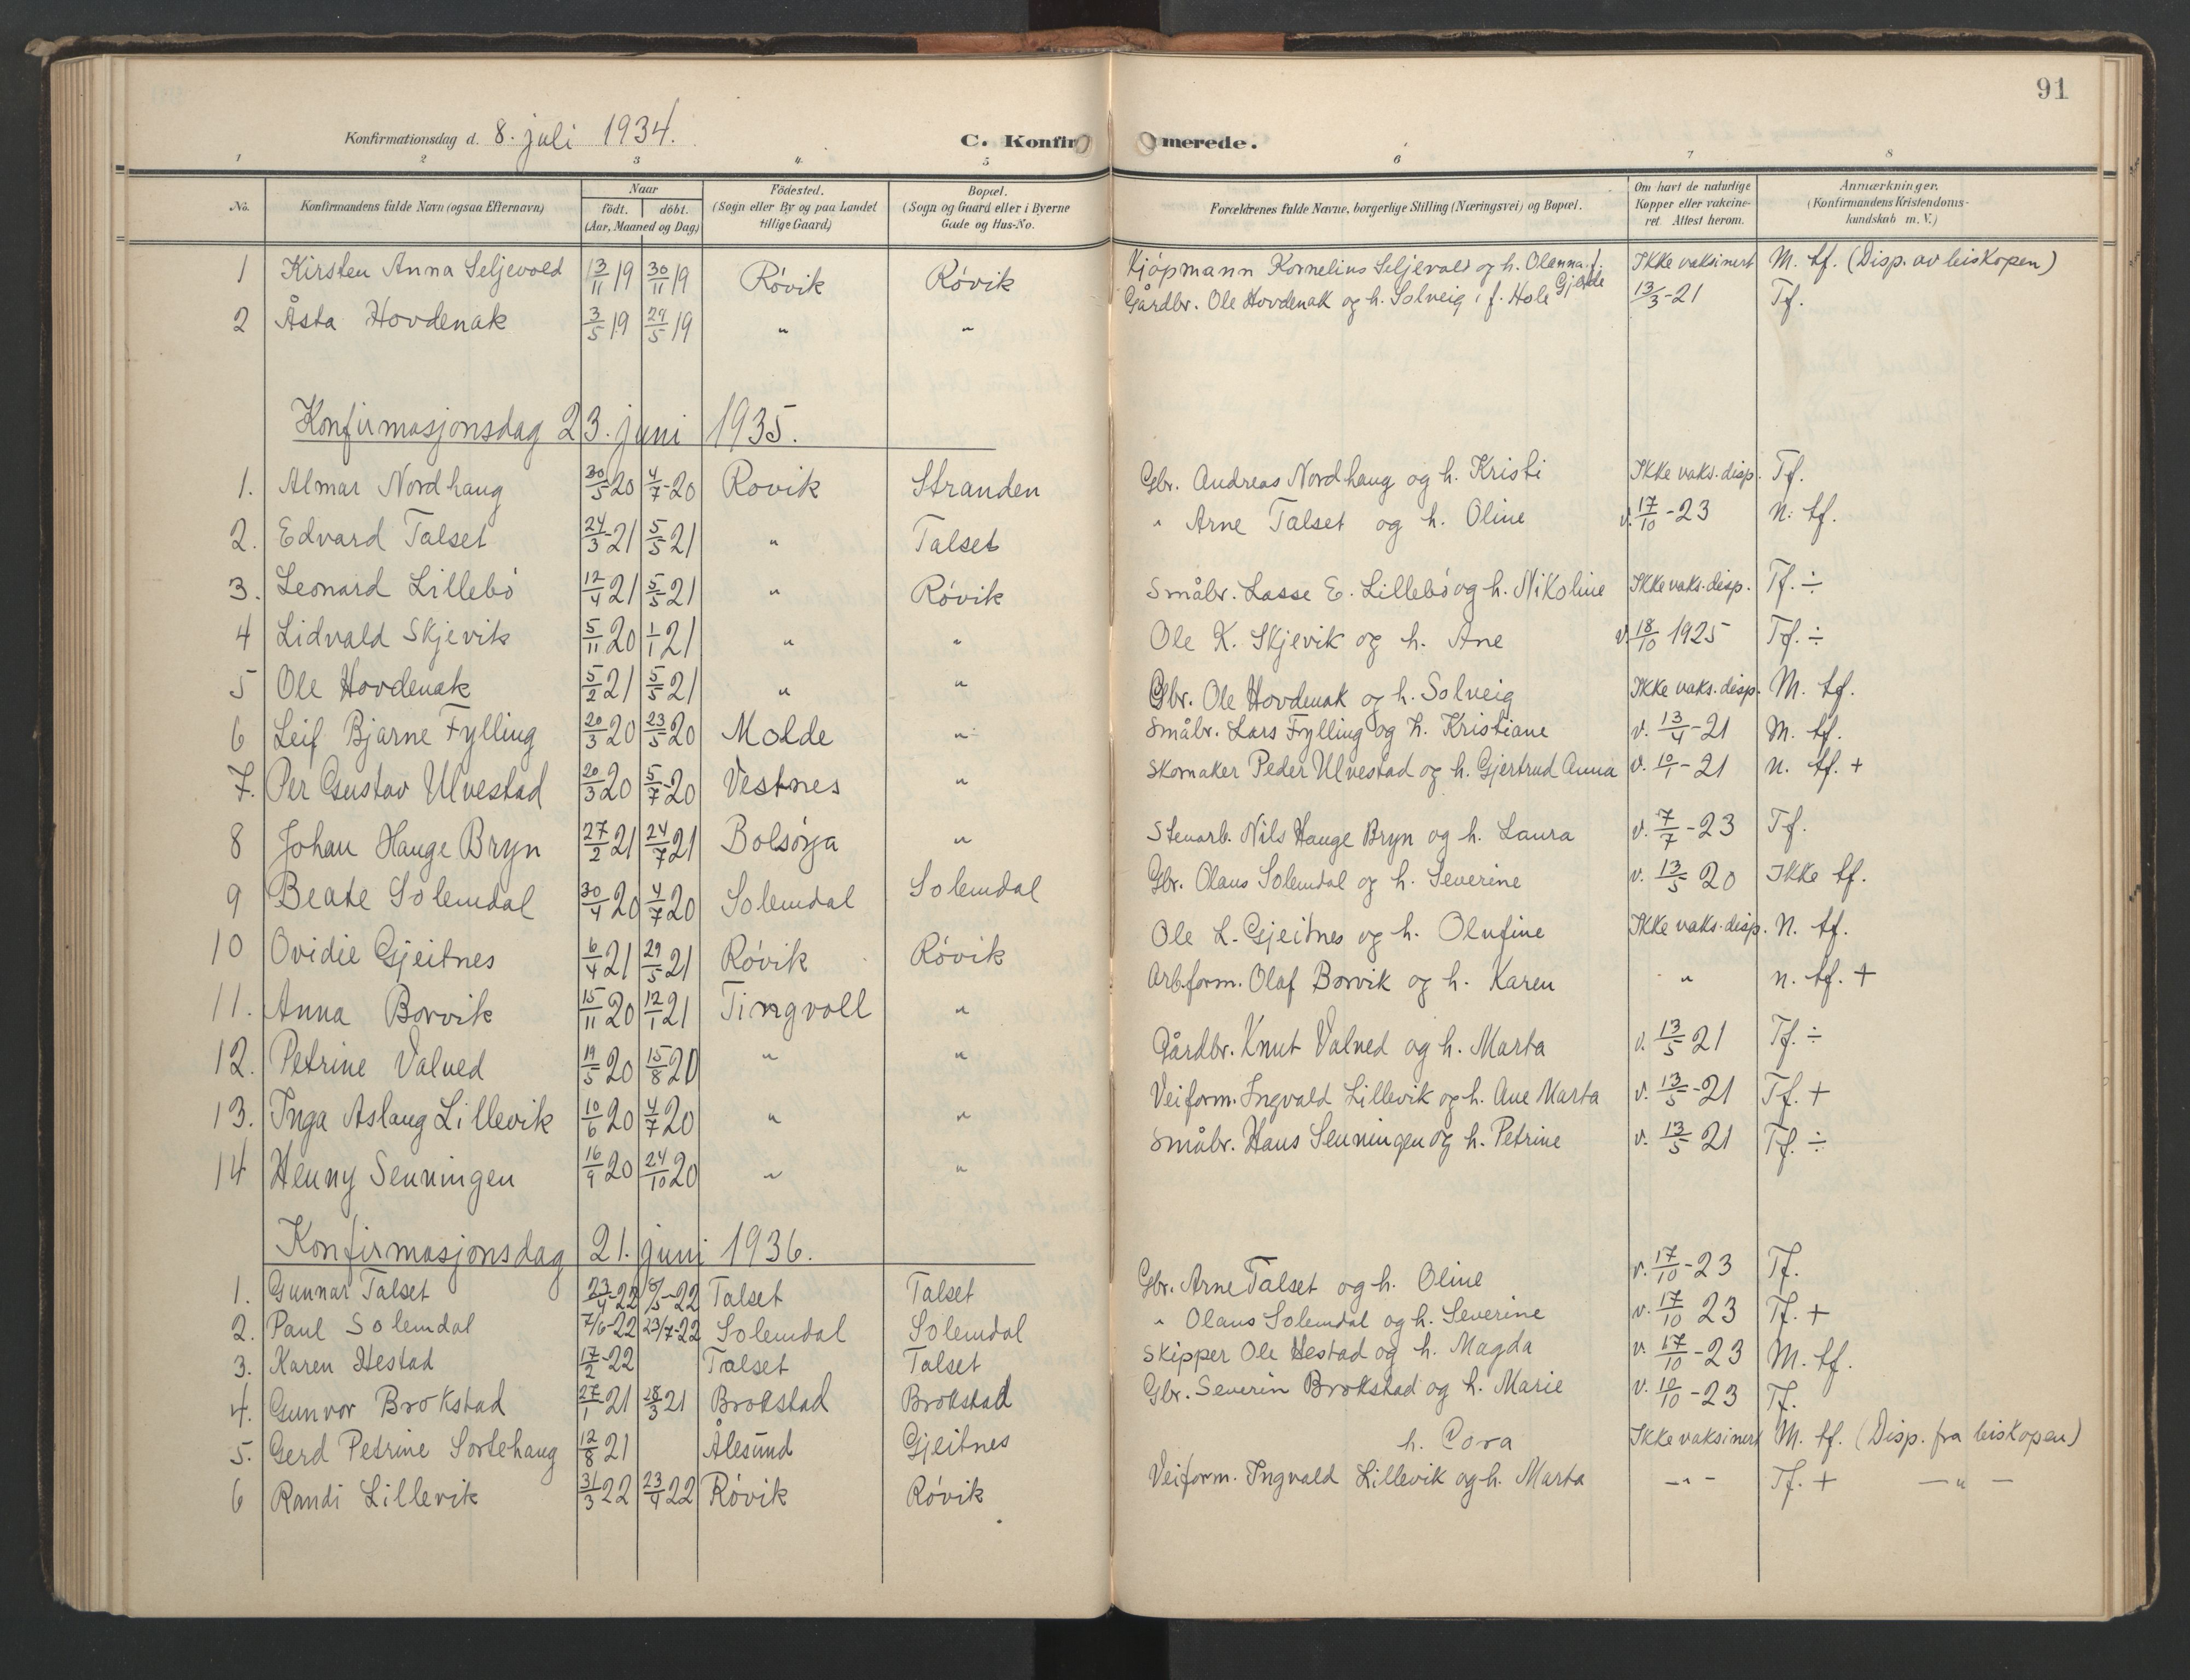 91
Konfirmationsdag d. 8. juli 1934.
C. Konfirmerede.
1 2 3 4 5 6 7 8
No.
Konfirmandens fulde Navn (ogsaa Efternavn)
Naar
födt. döbt.
(Aar, Maaned og Dag)
Födested.
(Sogn eller By og paa Landet
tillige Gaard)
Bopæl.
(Sogn og Gaard eller i Byerne
Gade og Hus-No.
Forældrenes fulde Navne, borgerlige Stilling (Næringsvei) og Bopæl.
Om havt de naturlige
Kopper eller vakcine-
ret. Attest herom.
Anmærkninger.
(Konfirmandens Kristendoms-
kundskab m. V.)
1 Kirsten Anna Seljevold 13/11 19 30/11 19 Róvik Róvik Kjópmann Kornelius Seljevold og h. Olanna f. Gjerde Ikke vaksinert M. tf. (Disp. av biskopen)
2 Åsta Hovdenak 3/5 19 29/5 19 " " Gårdbr. Ole Hovdenak og h. Solveig, f. Hole 13/3-21 Tf.
Konfirmasjonsdag 23. juni 1935.
1. Almar Nordhaug 30/5 20 4/7-20 Rovik Stranden Gbr. Andreas Nordhaug og h. Kristi Ikke vaks. disp. Tf.
2. Edvard Talset 24/3-21 5/5 21 " Talset " Arne Talset og h. Oline v. 17/10-23 N. tf.
3. Leonard Lillebó 12/4 21 5/5 21 " Róvik Småbr. Lasse E. Lillebó og h. Nikoline Ikke vaks. disp. Tf. ÷
4 Lidvald Skjevik 5/11 20 1/1 21 " " Ole K. Skjevik og h. Ane v. 18/10 1925 Tf. ÷
5 Ole Hovdenak 5/2 21 5/5 21 " " Gbr. Ole Hovdenak og h. Solveig Ikke vaks. disp. M. tf.
6 Leif Bjarne Fylling 20/3 20 23/5 20 Molde " Småbr. Lars Fylling og h. Kristiane v. 13/4-21 M. tf.
7. Per Gustav Ulvestad 20/3 20 5/7-20 Vestnes " Skomaker Peder Ulvestad og h. Gjertrud Anna v. 10/1-21 N. tf. +
8 Johan Hauge Bryn 27/2 21 24/7 21 Bolsóya " Stenarb. Nils Hauge Bryn og h. Laura v. 7/7-23 Tf.
9 Beate Solemdal 30/4 20 4/7 20 Solemdal Solemdal Gbr. Olaus Solemdal og h. Severine v. 13/5 20 Ikke tf.
10 Ovidie Gjeitnes 6/4 21 29/5 21 Róvik Róvik Ole L. Gjeitnes og h. Olufine Ikke vaks. disp. N. tf.
11. Anna Borvik 15/11 20 12/1 21 Tingvoll " Arb.form. Olaf Borvik og h. Karen " N. tf. +
12. Petrine Valved 19/5 20 15/8 20 " " Gårdbr. Knut Valved og h. Marta v. 13/5 21 Tf. ÷
13. Inga Aslaug Lillevik 10/6 20 4/7 20 " " Veiform. Ingvald Lillevik og h. Ane Marta v. 13/5-21 Tf. +
14 Henny Senningen 16/9 20 24/10 20 " " Småbr. Hans Senningen og h. Petrine v. 13/5 21 Tf. ÷
Konfirmasjonsdag 21. juni 1936.
1. Gunnar Talset 23/4-22 /5-22 Talset Talset Gbr. Arne Talset og h. Oline v. 17/10-23 Tf.
2. Paul Solemdal 7/6-22 23/7-22 Solemdal Solemdal " Olaus Solemdal og h. Severine v. 17/10 23 Tf. +
3. Karen Hestad 17/2-22 Talset Talset Skipper Ole Hestad og h. Magda v. 17/10-23 M. tf.
4. Gunvor Brokstad 27/1-21 28/3 21 Brokstad Brokstad Gbr. Severin Brokstad og h. Marie v. 10/10-23 Tf.
5. Gerd Petrine Sortehaug 12/8 21 Ålesund Gjeitnes h. Cora Ikke vaksinert M. tf. (Disp. fra biskopen)
6 Randi Lillevik 31/3 22 23/4 22 Róvik Róvik Veiform. Ingvald Lillevik og h. Marta -"- Tf. + -"-